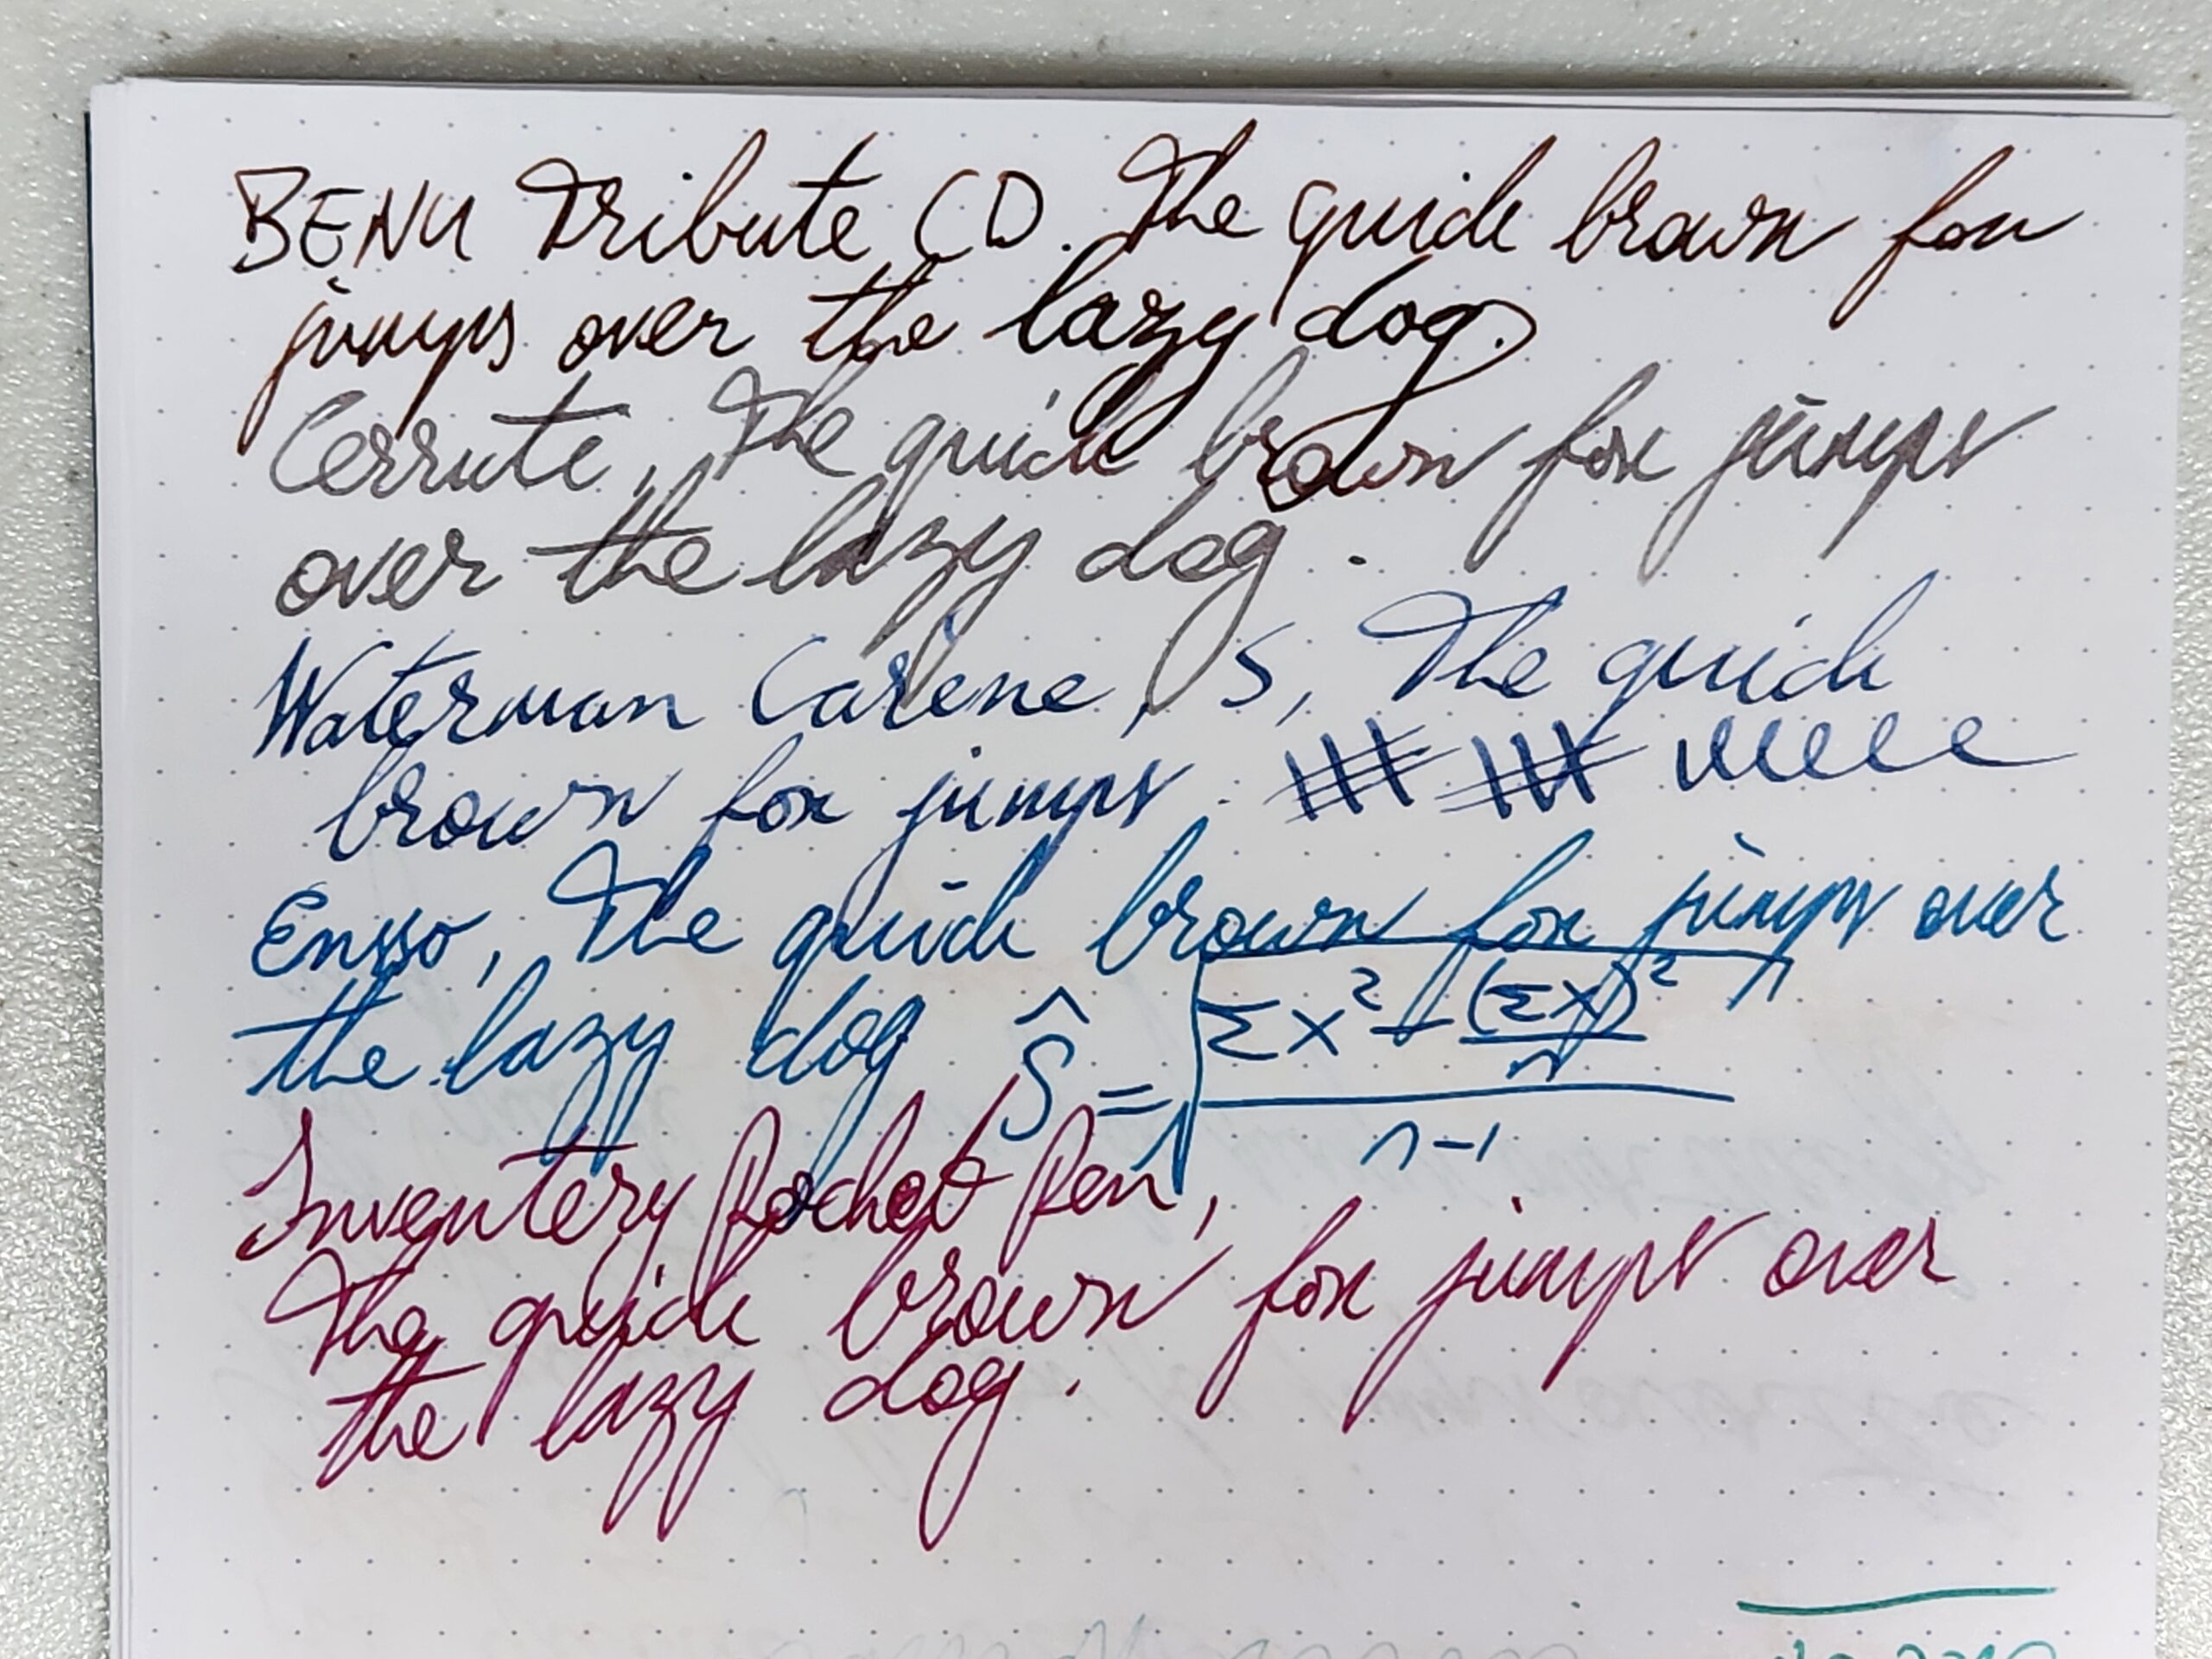 BENU Tribute CD. The quick brown fox
jumps over the lazy dog.
Cerrute, The quick brown fox jumps
over the lazy dog.
Waterman Carene, S, The quick
brown fox jumps.
Ensso, The quick brown fox jumps over
the lazy dog Ŝ = √((Σx² - (Σx)²/n)/(n-1))
Inventery Pocket Pen,
The quick brown fox jumps over
the lazy dog.